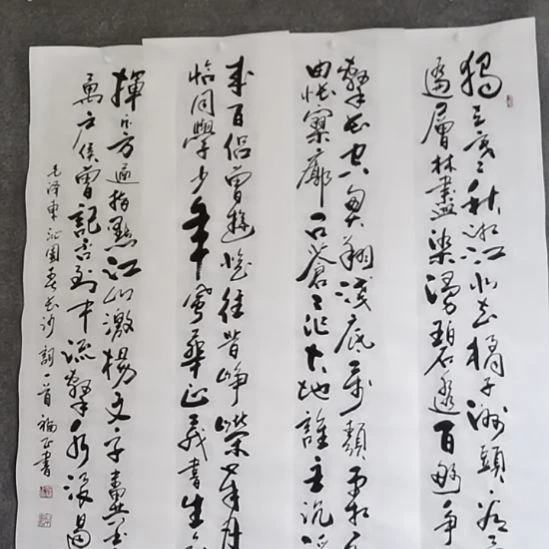 獨立寒秋湘江北去橘子洲頭看
遍層林盡染漫碧透百舸争
擊長空魚翔淺底万類霜
由悵寥廓问蒼茫大地誰主沉
來百侣曾遊憶往昔崢嶸歲月
恰同學少年風華正茂書生
揮斥方遒指點江山激揚文字糞土
萬户侯曾記否到中流擊水浪遏
毛澤東沁園春長沙詞一首 福正書